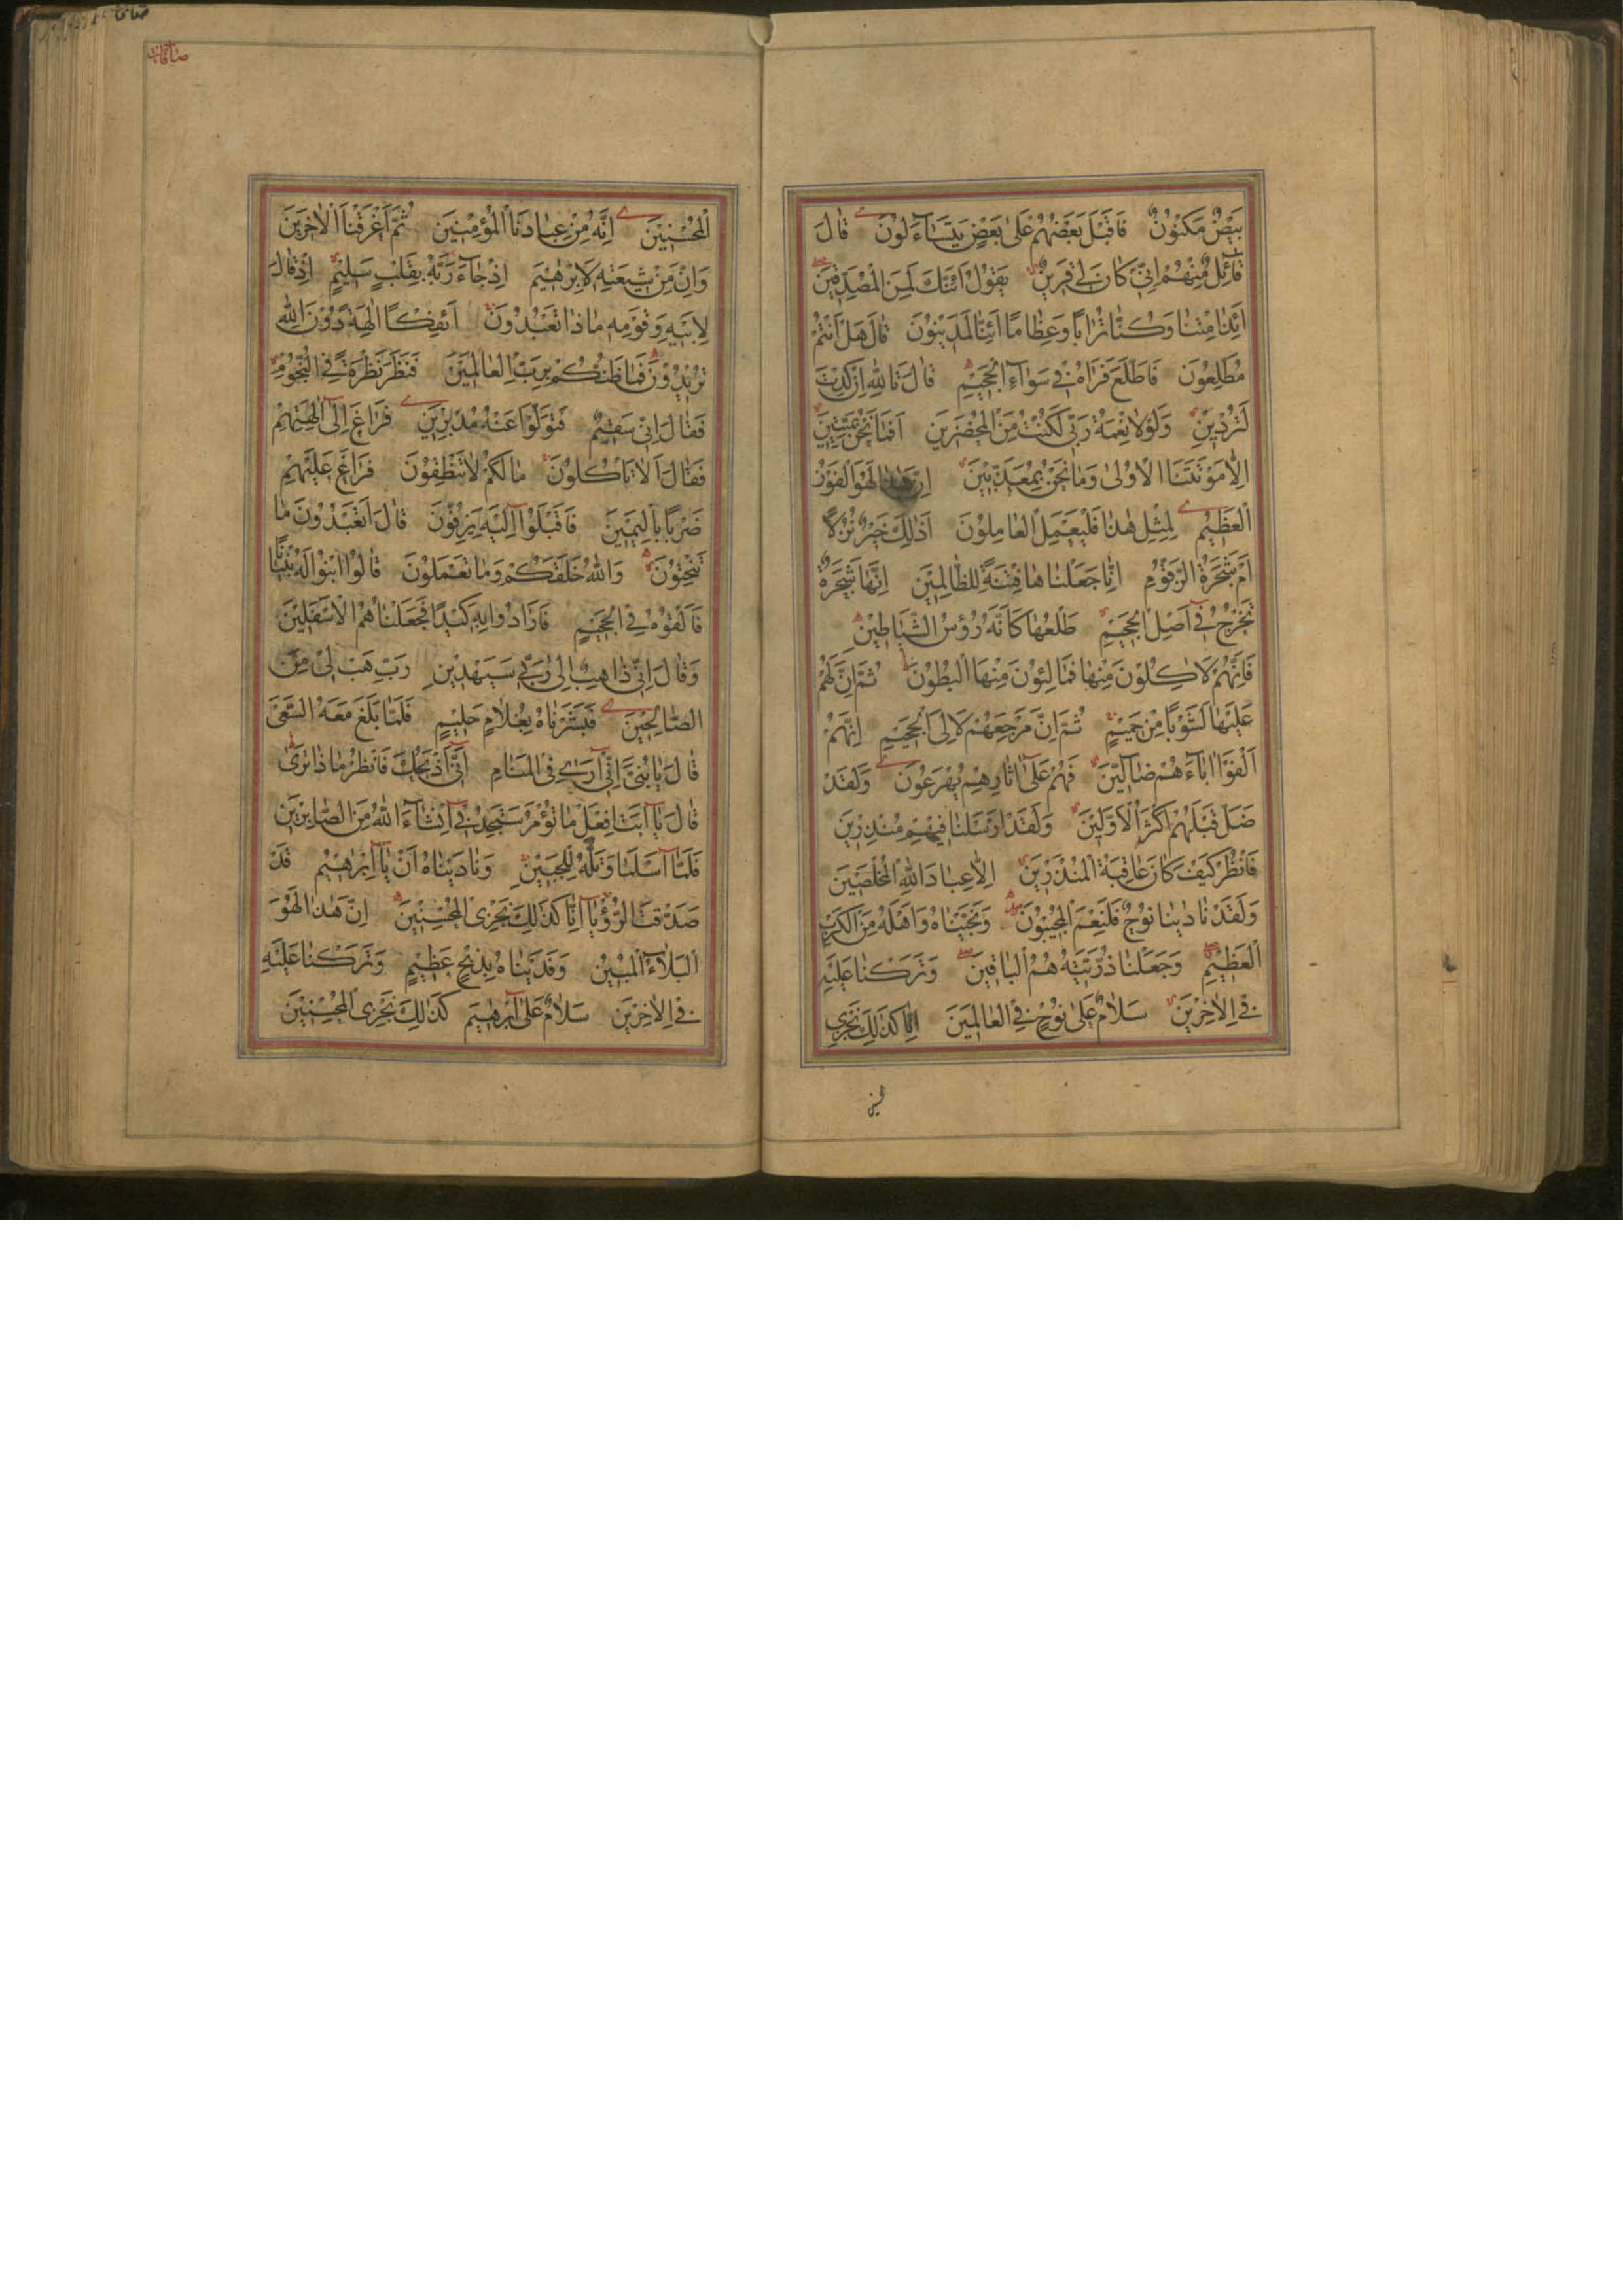 بَيْضٌ مَكْنُوْنٌ فَاَقْبَلَ بَعْضُهُمْ عَلٰى بَعْضٍ يَتَسَآءَلُوْنَ قَالَ
قَآئِلٌ مِنْهُمْ اِنّٖى كَانَ لٖى قَرٖينٌ يَقُوْلُ اَئِنَّكَ لَمِنَ الْمُصَدِّقٖينَ
اَئِذَا مِتْنَا وَكُنَّا تُرَابًا وَعِظَامًا اَئِنَّا لَمَدٖينُوْنَ قَالَ هَلْ اَنْتُمْ
مُطَّلِعُوْنَ فَاطَّلَعَ فَرَاٰهُ فٖى سَوَآءِ الْجَحٖيمِ قَالَ تَاللّٰهِ اِنْ كِدْتَ
لَتُرْدٖينِ وَلَوْلَا نِعْمَةُ رَبّٖى لَكُنْتُ مِنَ الْمُحْضَرٖينَ اَفَمَا نَحْنُ بِمَيِّتٖينَ
اِلَّا مَوْتَتَنَا الْاُوْلٰى وَمَا نَحْنُ بِمُعَذَّبٖينَ اِنَّ هٰذَا لَهُوَ الْفَوْزُ
الْعَظٖيمُ لِمِثْلِ هٰذَا فَلْيَعْمَلِ الْعَامِلُوْنَ اَذٰلِكَ خَيْرٌ نُزُلًا
اَمْ شَجَرَةُ الزَّقُّوْمِ اِنَّا جَعَلْنَاهَا فِتْنَةً لِلظَّالِمٖينَ اِنَّهَا شَجَرَةٌ
تَخْرُجُ فٖى اَصْلِ الْجَحٖيمِ طَلْعُهَا كَاَنَّهُ رُؤُسُ الشَّيَاطٖينِ
فَاِنَّهُمْ لَاٰكِلُوْنَ مِنْهَا فَمَالِئُوْنَ مِنْهَا الْبُطُوْنَ ثُمَّ اِنَّ لَهُمْ
عَلَيْهَا لَشَوْبًا مِنْ حَمٖيمٍ ثُمَّ اِنَّ مَرْجِعَهُمْ لَاِلَى الْجَحٖيمِ اِنَّهُمْ
اَلْفَوْا اٰبَآءَهُمْ ضَآلّٖينَ فَهُمْ عَلٰى اٰثَارِهِمْ يُهْرَعُوْنَ وَلَقَدْ
ضَلَّ قَبْلَهُمْ اَكْثَرُ الْاَوَّلٖينَ وَلَقَدْ اَرْسَلْنَا فٖيهِمْ مُنْذِرٖينَ
فَانْظُرْ كَيْفَ كَانَ عَاقِبَةُ الْمُنْذَرٖينَ اِلَّا عِبَادَ اللّٰهِ الْمُخْلَصٖينَ
وَلَقَدْ نَادٰينَا نُوْحٌ فَلَنِعْمَ الْمُجٖيبُوْنَ وَنَجَّيْنَاهُ وَاَهْلَهُ مِنَ الْكَرْبِ
الْعَظٖيمِ وَجَعَلْنَا ذُرِّيَّتَهُ هُمُ الْبَاقٖينَ وَتَرَكْنَا عَلَيْهِ
فِى الْاٰخِرٖينَ سَلَامٌ عَلٰى نُوْحٍ فِى الْعَالَمٖينَ اِنَّا كَذٰلِكَ نَجْزِى
صافات
الْمُحْسِنٖينَ اِنَّهُ مِنْ عِبَادِنَا الْمُؤْمِنٖينَ ثُمَّ اَغْرَقْنَا الْاٰخَرٖينَ
وَاِنَّ مِنْ شٖيعَتِهٖ لَاِبْرٰهٖيمَ اِذْ جَآءَ رَبَّهُ بِقَلْبٍ سَلٖيمٍ اِذْ قَالَ
لِاَبٖيهِ وَقَوْمِهٖ مَاذَا تَعْبُدُوْنَ اَئِفْكًا اٰلِهَةً دُوْنَ اللّٰهِ
تُرٖيدُوْنَ فَمَا ظَنُّكُمْ بِرَبِّ الْعَالَمٖينَ فَنَظَرَ نَظْرَةً فِى النُّجُوْمِ
فَقَالَ اِنّٖى سَقٖيمٌ فَتَوَلَّوْا عَنْهُ مُدْبِرٖينَ فَرَاغَ اِلٰى اٰلِهَتِهِمْ
فَقَالَ اَلَا تَاْكُلُوْنَ مَا لَكُمْ لَا تَنْطِقُوْنَ فَرَاغَ عَلَيْهِمْ
ضَرْبًا بِالْيَمٖينِ فَاَقْبَلُوْا اِلَيْهِ يَزِفُّوْنَ قَالَ اَتَعْبُدُوْنَ مَا
تَنْحِتُوْنَ وَاللّٰهُ خَلَقَكُمْ وَمَا تَعْمَلُوْنَ قَالُوا ابْنُوْا لَهُ بُنْيَانًا
فَاَلْقُوْهُ فِى الْجَحٖيمِ فَاَرَادُوْا بِهٖ كَيْدًا فَجَعَلْنَاهُمُ الْاَسْفَلٖينَ
وَقَالَ اِنّٖى ذَاهِبٌ اِلٰى رَبّٖى سَيَهْدٖينِ رَبِّ هَبْ لٖى مِنَ
الصَّالِحٖينَ فَبَشَّرْنَاهُ بِغُلَامٍ حَلٖيمٍ فَلَمَّا بَلَغَ مَعَهُ السَّعْىَ
قَالَ يَا بُنَىَّ اِنّٖى اَرٰى فِى الْمَنَامِ اَنّٖى اَذْبَحُكَ فَانْظُرْ مَاذَا تَرٰى
قَالَ يَا اَبَتِ افْعَلْ مَا تُؤْمَرُ سَتَجِدُنٖى اِنْ شَآءَ اللّٰهُ مِنَ الصَّابِرٖينَ
فَلَمَّا اَسْلَمَا وَتَلَّهُ لِلْجَبٖينِ وَنَادَيْنَاهُ اَنْ يَا اِبْرٰهٖيمُ قَدْ
صَدَّقْتَ الرُّؤْيَا اِنَّا كَذٰلِكَ نَجْزِى الْمُحْسِنٖينَ اِنَّ هٰذَا لَهُوَ
الْبَلَآءُ الْمُبٖينُ وَفَدَيْنَاهُ بِذِبْحٍ عَظٖيمٍ وَتَرَكْنَا عَلَيْهِ
فِى الْاٰخِرٖينَ سَلَامٌ عَلٰى اِبْرٰهٖيمَ كَذٰلِكَ نَجْزِى الْمُحْسِنٖينَ